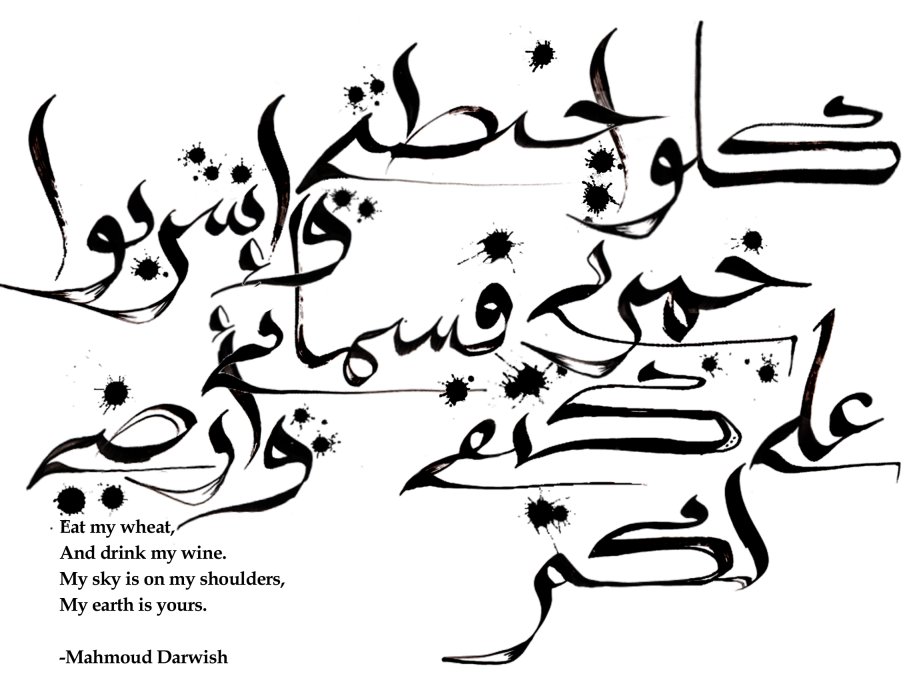 كلوا حنطتي واشربوا
خمري فسمائي
على كتفي وارضي
لكم
Eat my wheat,
And drink my wine.
My sky is on my shoulders,
My earth is yours.
-Mahmoud Darwish